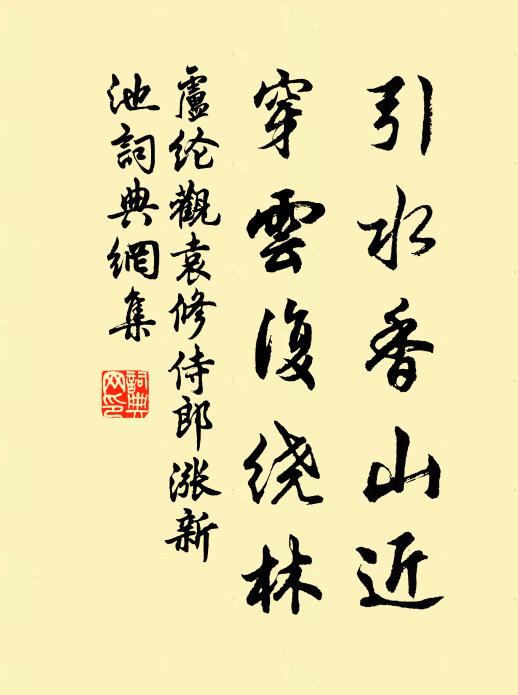 引水香山近
穿雲復绕林
盧纶觀袁修侍郎漲新
池詞典網集
詞典
网印